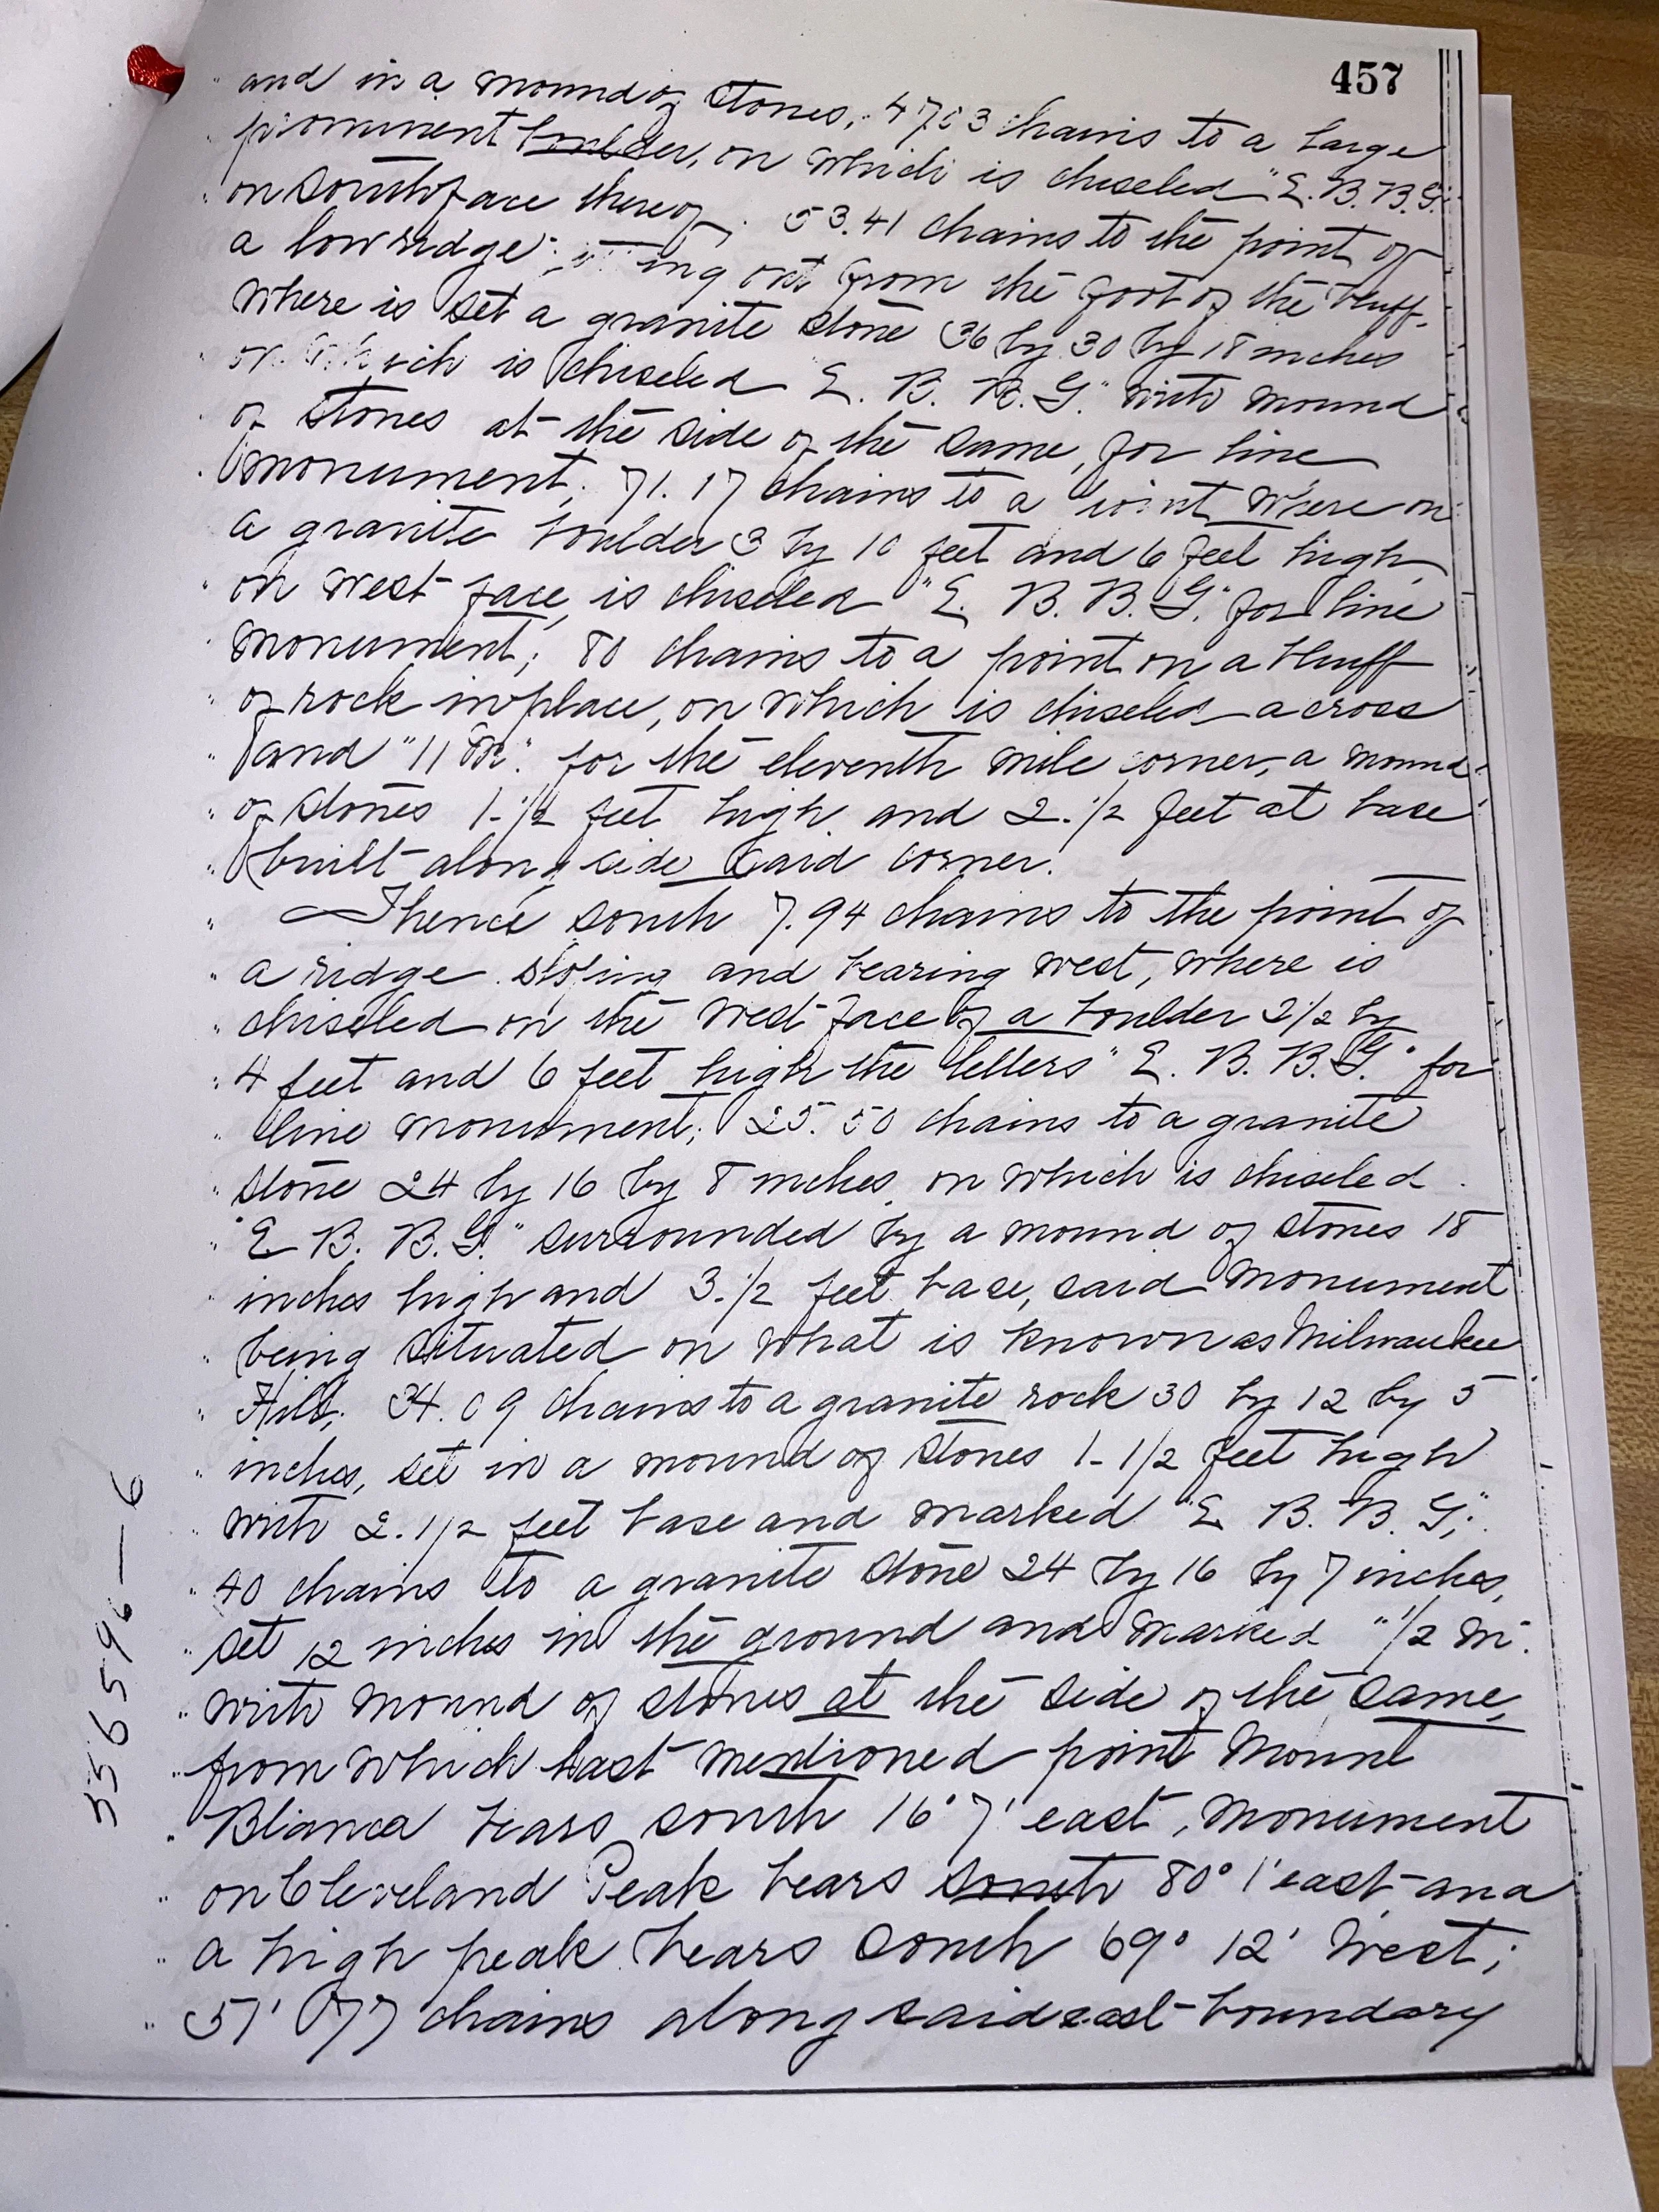 457
and in a mound of stones, 47.03 chains to a large
prominent boulder, on which is chiseled "E. B. B. G."
on south face thereof. 53.41 chains to the point of
a low ridge ing out from the foot of the bluff,
where is set a granite stone 36 by 30 by 18 inches
on which is chiseled E. B. B. G." with mound
of stones at the side of the same, for line
monument; 71.17 chains to a point where on
a granite boulder 3 by 10 feet and 6 feet high
on west face, is chiseled "E. B. B. G." for line
monument; 80 chains to a point on a bluff
of rock in place, on which is chiseled a cross
and "11 M." for the eleventh mile corner, a mound
of stones 1-1/2 feet high and 2-1/2 feet at base
built along side said corner.
Thence south 7.94 chains to the point of
a ridge sloping and bearing west, where is
chiseled on the west face of a boulder 2 1/2 by
4 feet and 6 feet high the letters "E. B. B. G." for
line monument; 25.50 chains to a granite
stone 24 by 16 by 8 inches, on which is chiseled
"E B. B. G." surrounded by a mound of stones 18
inches high and 3-1/2 feet base, said monument
being situated on what is known as Milwaukee
Hill; 34.09 chains to a granite rock 30 by 12 by 5
inches, set in a mound of stones 1-1/2 feet high
with 2-1/2 feet base and marked "E B. B. G;"
40 chains to a granite stone 24 by 16 by 7 inches,
set 12 inches in the ground and marked "1/2 M".
with mound of stones at the side of the same,
from which last mentioned point Mount
Blanca bears south 16° 7' east, monument
on Cleveland Peak bears south 80° 1' east and
a high peak bears south 69° 12' west;
57.77 chains along said east boundary
556596-6